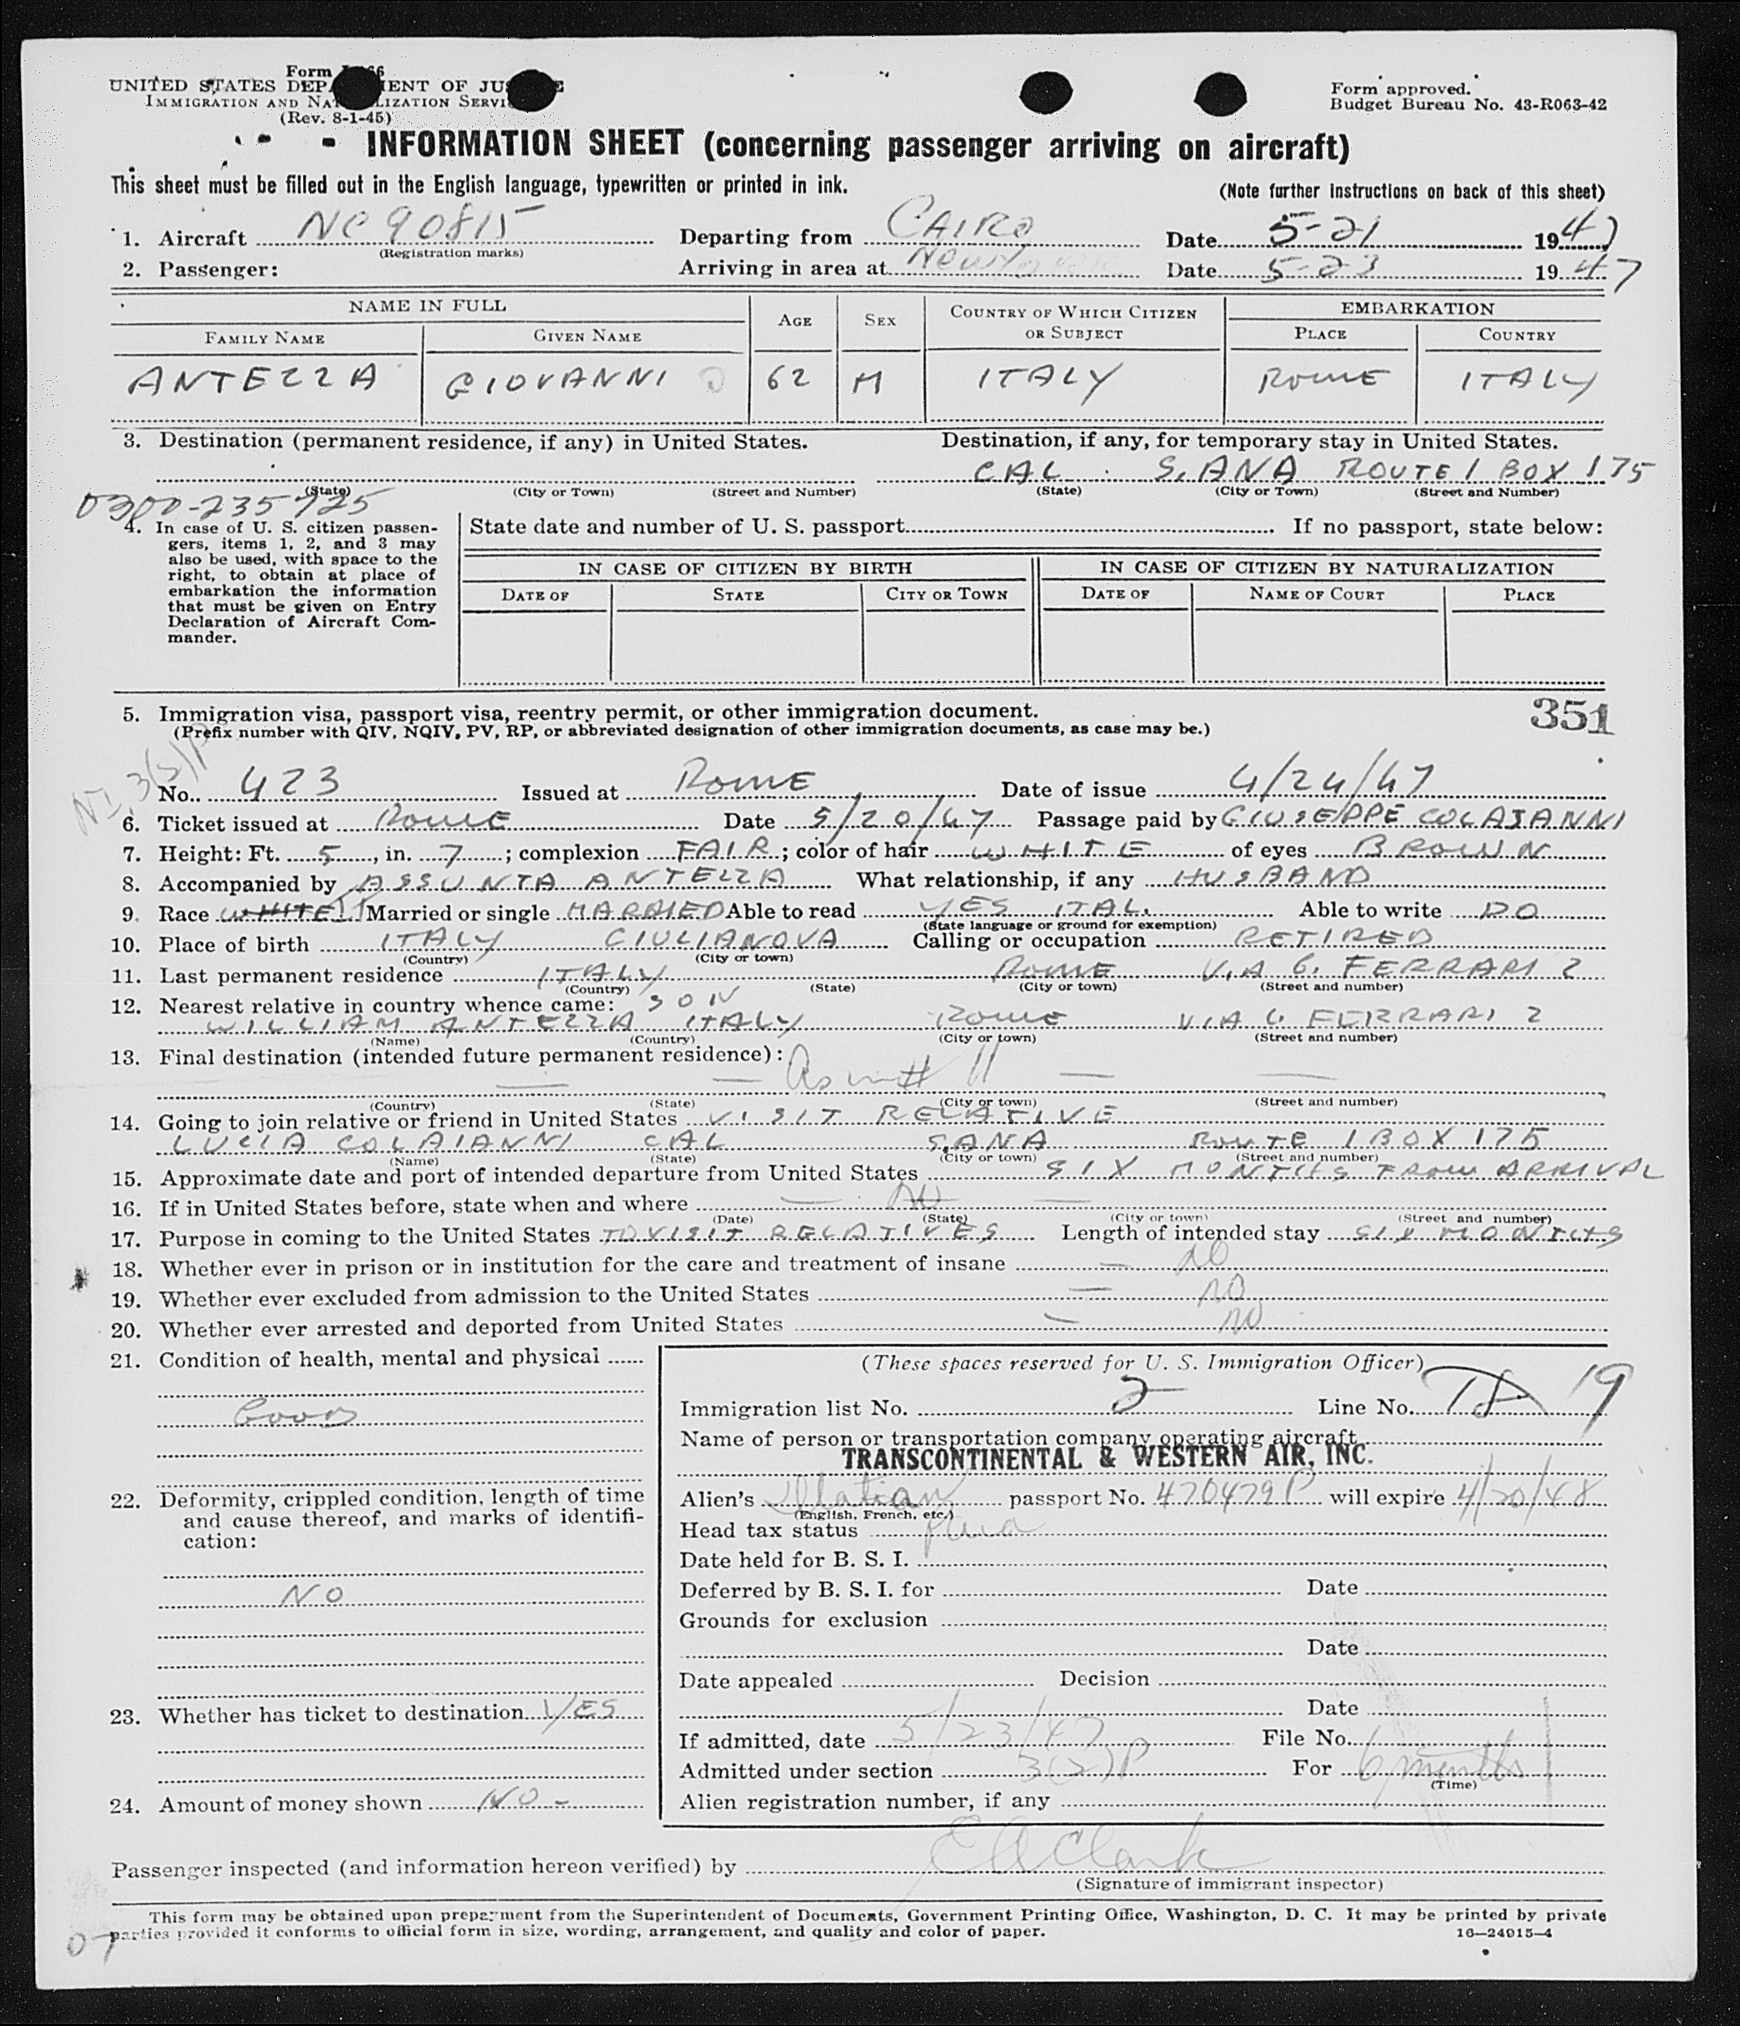 Form
UNITED STATES DEP ENT OF JU
IMMIGRATION AND NA LIZATION SERVI
(Rev. 8-1-45)
Form approved.
Budget Bureau No. 43-R063-42
INFORMATION SHEET (concerning passenger arriving on aircraft)
This sheet must be filled out in the English language, typewritten or printed in ink.
(Note further instructions on back of this sheet)
1. Aircraft NC 90815 Departing from CAIRO Date 5-21 1947
(Registration marks)
2. Passenger: Arriving in area at New York Date 5-23 1947
NAME IN FULL AGE SEX COUNTRY OF WHICH CITIZEN OR SUBJECT EMBARKATION
FAMILY NAME GIVEN NAME PLACE COUNTRY
ANTEZZA GIOVANNI 62 M ITALY ROME ITALY
3. Destination (permanent residence, if any) in United States. Destination, if any, for temporary stay in United States.
CAL S. ANA ROUTE 1 BOX 175
(State) (City or Town) (Street and Number) (State) (City or Town) (Street and Number)
0300-235725
4. In case of U. S. citizen passen-
gers, items 1, 2, and 3 may
also be used, with space to the
right, to obtain at place of
embarkation the information
that must be given on Entry
Declaration of Aircraft Com-
mander.
State date and number of U. S. passport If no passport, state below:
IN CASE OF CITIZEN BY BIRTH IN CASE OF CITIZEN BY NATURALIZATION
DATE OF STATE CITY OR TOWN DATE OF NAME OF COURT PLACE
5. Immigration visa, passport visa, reentry permit, or other immigration document.
(Prefix number with QIV, NQIV, PV, RP, or abbreviated designation of other immigration documents, as case may be.)
351
NI 3(2)P
No. 423 Issued at ROME Date of issue 4/24/47
6. Ticket issued at ROME Date 5/20/47 Passage paid by GIUSEPPE COLAIANNI
7. Height: Ft. 5, in. 7; complexion FAIR; color of hair WHITE of eyes BROWN
8. Accompanied by ASSUNTA ANTEZZA What relationship, if any HUSBAND
9. Race WHITE IT Married or single MARRIED Able to read YES ITAL. Able to write DO
(State language or ground for exemption)
10. Place of birth ITALY GIULIANOVA Calling or occupation RETIRED
(Country) (City or town)
11. Last permanent residence ITALY ROME VIA G. FERRARI 2
(Country) (State) (City or town) (Street and number)
12. Nearest relative in country whence came: SON
WILLIAM ANTEZZA ITALY ROME VIA G. FERRARI 2
(Name) (Country) (City or town) (Street and number)
13. Final destination (intended future permanent residence):
— — As in # 11 — —
(Country) (State) (City or town) (Street and number)
14. Going to join relative or friend in United States VISIT RELATIVE
LUCIA COLAIANNI CAL S. ANA ROUTE 1 BOX 175
(Name) (State) (City or town) (Street and number)
15. Approximate date and port of intended departure from United States SIX MONTHS FROM ARRIVAL
16. If in United States before, state when and where — NO —
(Date) (State) (City or town) (Street and number)
17. Purpose in coming to the United States TO VISIT RELATIVES Length of intended stay SIX MONTHS
18. Whether ever in prison or in institution for the care and treatment of insane — NO
19. Whether ever excluded from admission to the United States — NO
20. Whether ever arrested and deported from United States — NO
21. Condition of health, mental and physical
GOOD
22. Deformity, crippled condition, length of time
and cause thereof, and marks of identifi-
cation:
NO
23. Whether has ticket to destination YES
24. Amount of money shown NO -
(These spaces reserved for U. S. Immigration Officer)
Immigration list No. 2 Line No. 18 19
Name of person or transportation company operating aircraft
TRANSCONTINENTAL & WESTERN AIR, INC.
Alien's Italian passport No. 470479P will expire 4/20/48
(English, French, etc.)
Head tax status
Date held for B. S. I.
Deferred by B. S. I. for Date
Grounds for exclusion
Date
Date appealed Decision
Date
If admitted, date 5/23/47 File No.
Admitted under section 3(2)P For 6 months
(Time)
Alien registration number, if any
Passenger inspected (and information hereon verified) by E A Clark
(Signature of immigrant inspector)
This form may be obtained upon prepayment from the Superintendent of Documents, Government Printing Office, Washington, D. C. It may be printed by private
parties provided it conforms to official form in size, wording, arrangement, and quality and color of paper.
16—24915-4
07